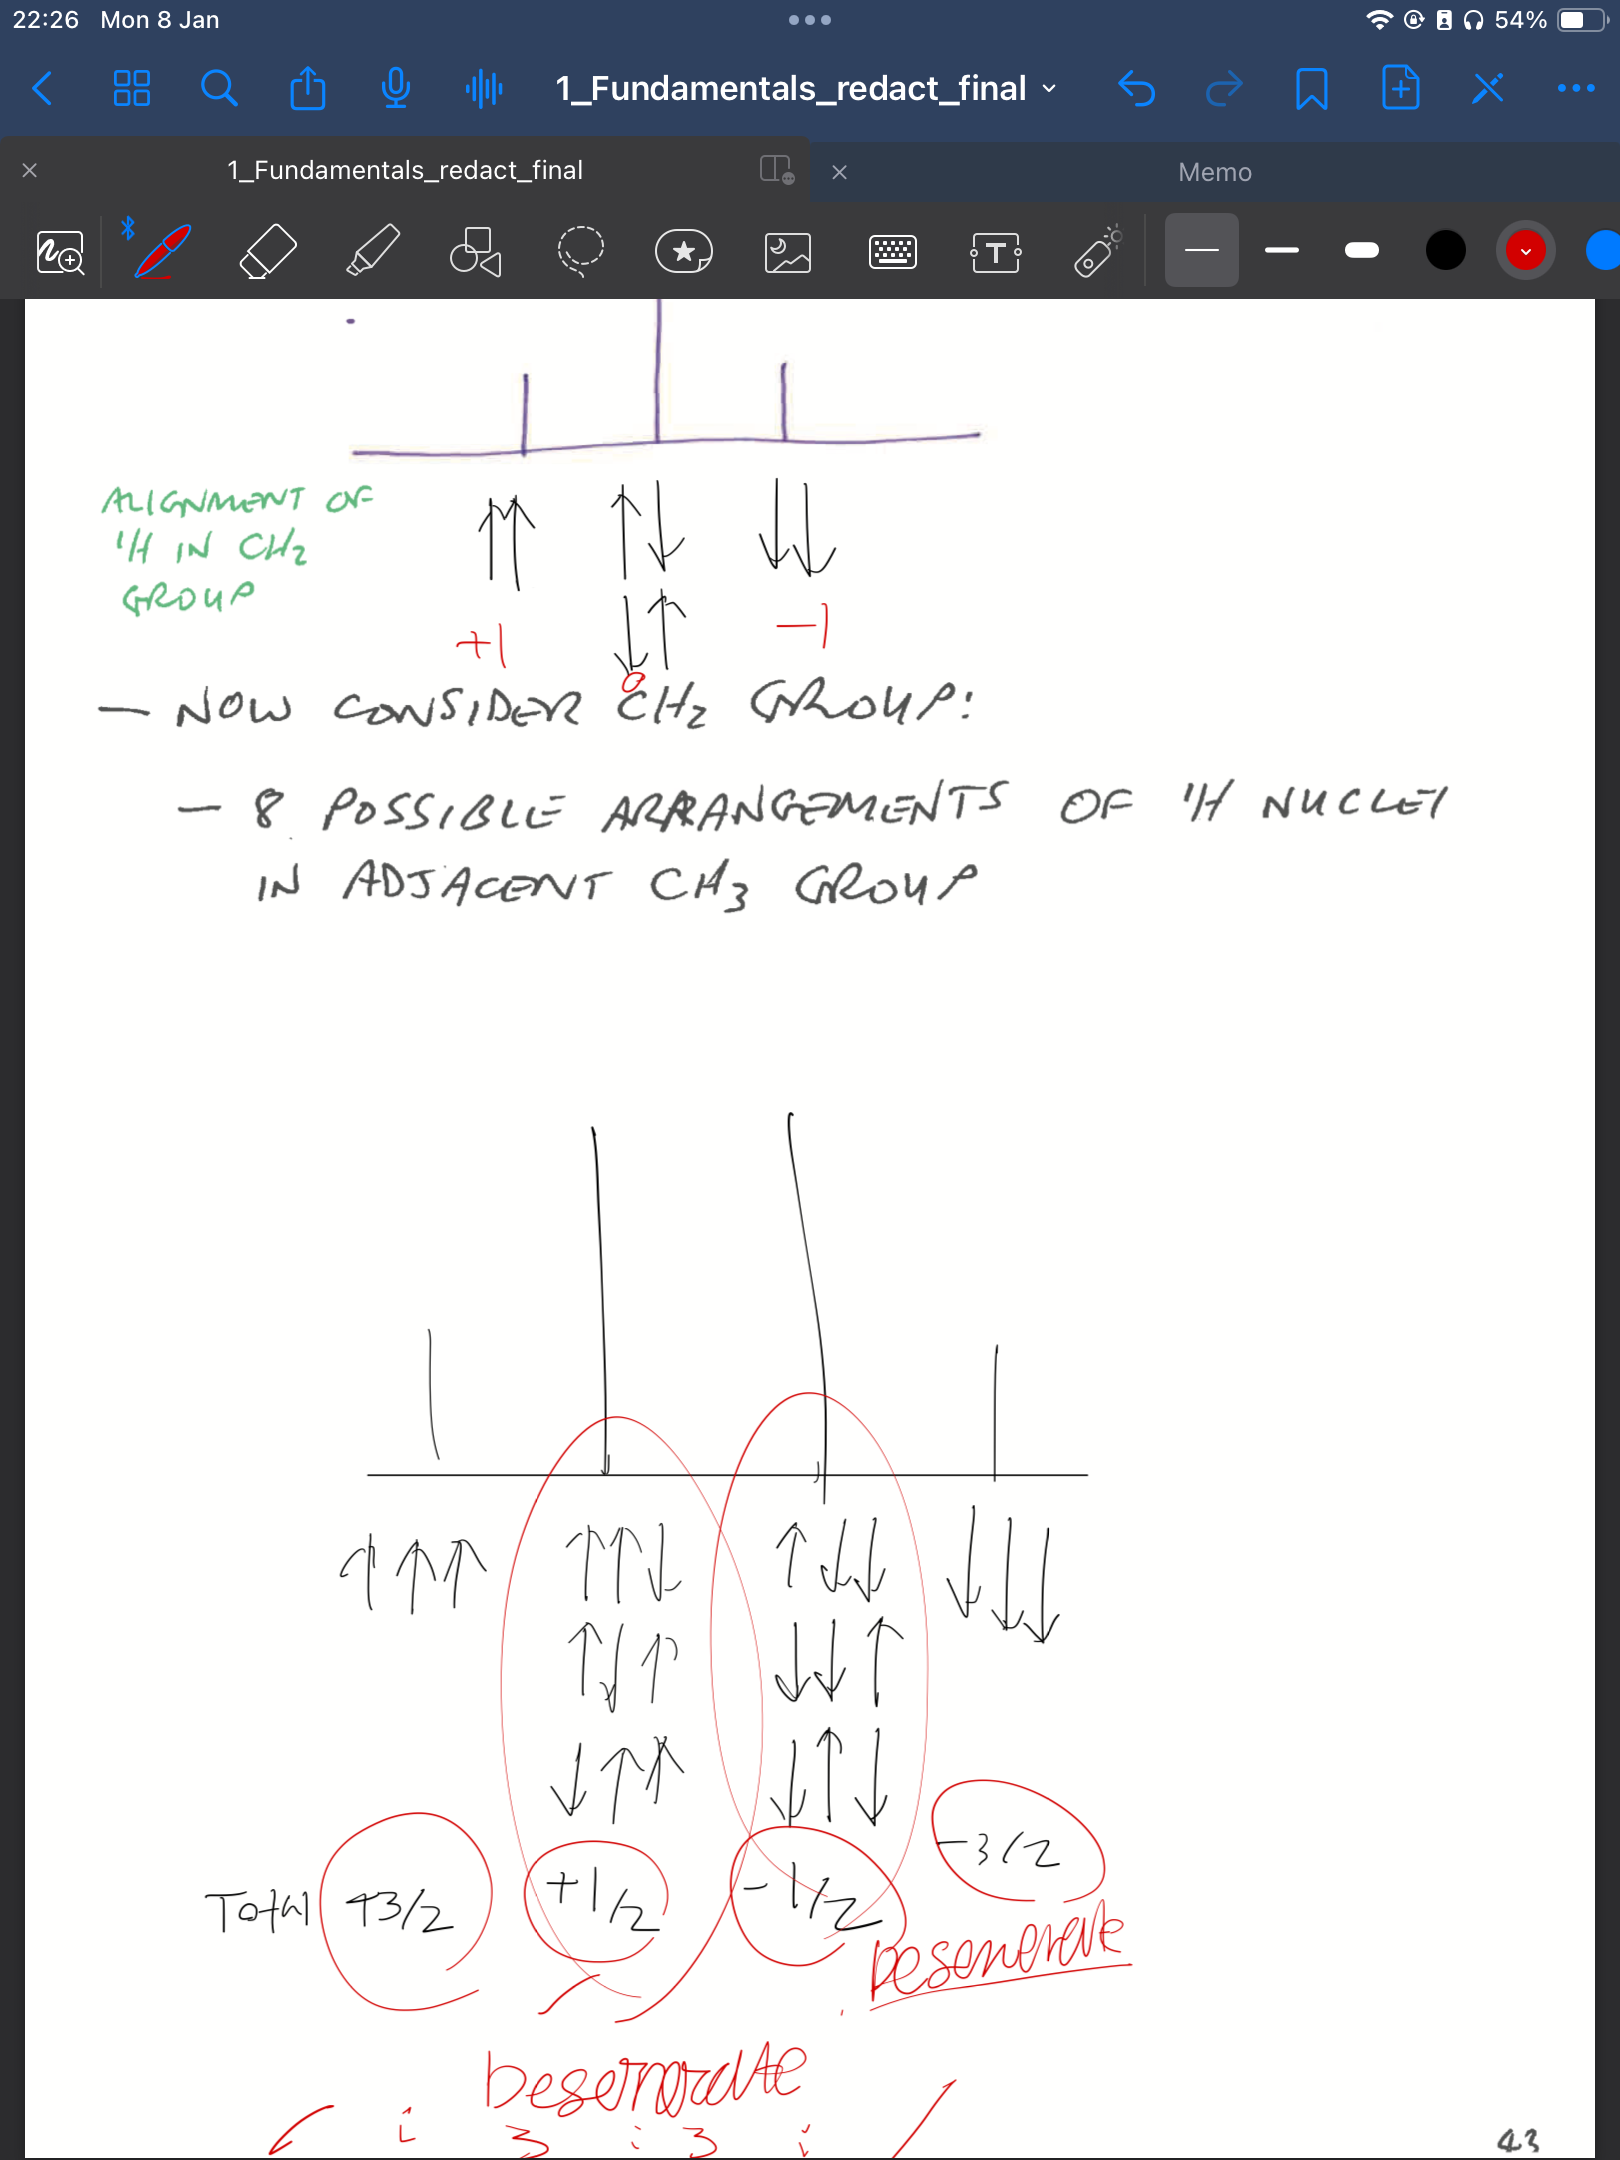 22:26 Mon 8 Jan
54%
1_Fundamentals_redact_final
1_Fundamentals_redact_final
Memo
ALIGNMENT OF
¹H IN CH₂
GROUP
+1
0
-1
- NOW CONSIDER CH₂ GROUP:
- 8 POSSIBLE ARRANGEMENTS OF ¹H NUCLEI
IN ADJACENT CH₃ GROUP
Total +3/2 +1/2 -1/2 -3/2
Desenerate
Desenerate
3 : 3
43